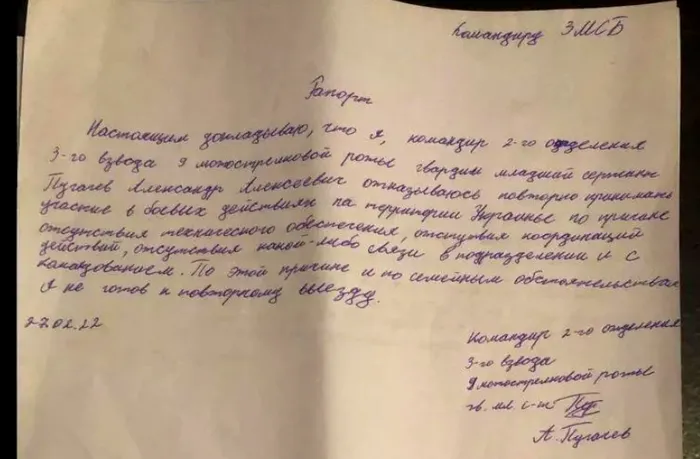 Командиру 3МСБ
Рапорт
Настоящим докладываю, что я, командир 2-го отделения
3-го взвода 9 мотострелковой роты гвардии младший сержант
Пугачев Александр Алексеевич отказываюсь повторно принимать
участие в боевых действиях на территории Украины по причине
отсутствия технического обеспечения, отсутствия координаций
действий, отсутствия какой-либо связи в подразделении и с
командованием. По этой причине и по семейным обстоятельствам
Я не готов к повторному выезду.
27.02.22
Командир 2-го отделения
3-го взвода
9 мотострелковой роты
гв. мл. с-т
А. Пугачев